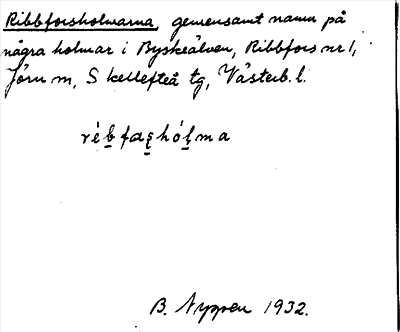 Ribbforsholmarna, gemensamt namn på
några holmar i Byskeälven, Ribbfors nr 1,
Jörn sn, Skellefteå tg, Västerb. l.
rébfaʂhólma
B. Nyssen 1932.